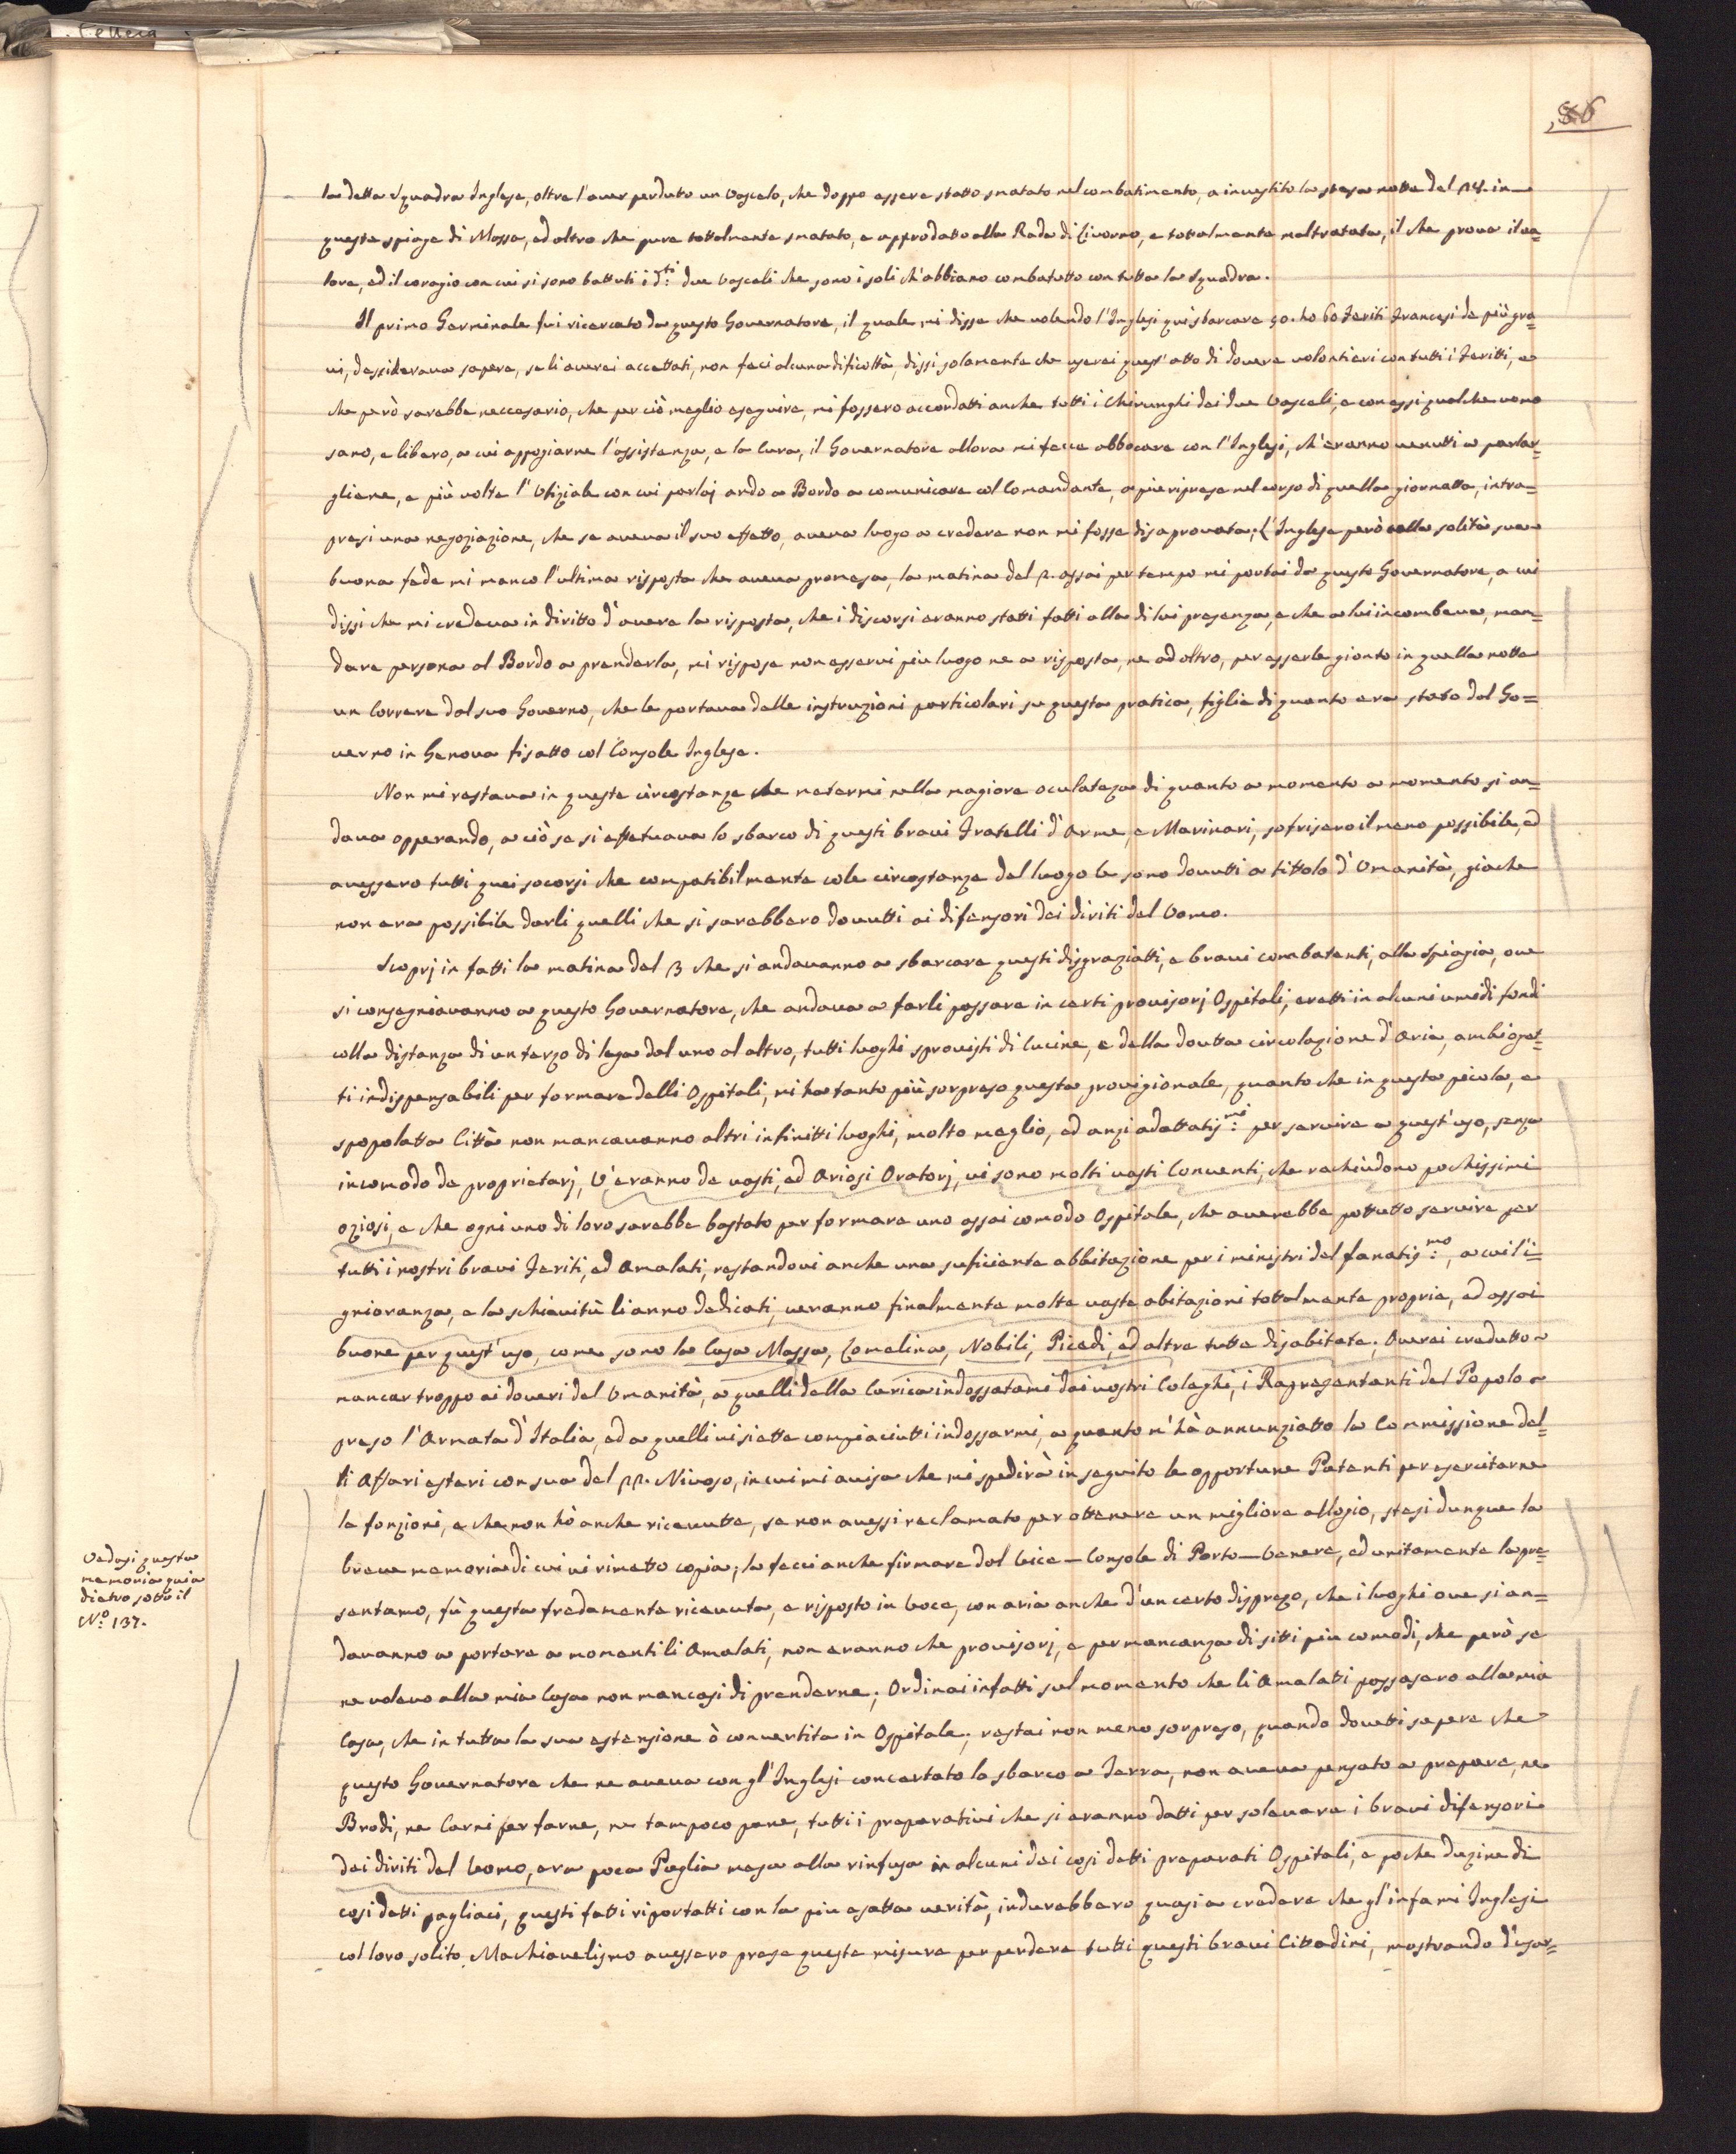 86
la detta Squadra Inglese, oltre l'aver perduto un Vascelo, che doppo essere statto smatato nel combatimento, a investito la stessa notte del 24. in
queste spiage di Massa, ed altro che pure tottalmente smatato, e approdatto alla Rada di Livorno, e tottalmente maltratata, il che prova il va=
lore, ed il coragio con cui si sono battuti i d.ti due Vasceli che sono i soli ch'abbiano combatutto con tutta la Squadra.
Il primo Germinale fui ricercato da questo Governatore, il quale mi disse che volendo l'Inglesi quì sbarcare 50. ho 60 Feriti Francesi de più gra=
vi, dessiderava sapere, se li averei accettati, non feci alcuna dificoltà, dissi solamente che userei quest'atto di dovere volontieri con tutti i Feritti, e
che però sarebbe neccesario, che per ciò meglio eseguire, mi fossero accordatti anche tutti i Chirurghi dei due Vasceli, e con essi qualche uomo
sano, e libero, a cui appogiarne l'assistenza, e la Cura, il Governatore allora mi fece abbocare con l'Inglesi, ch'eranno venutti a parlar=
gliene, e più volte l'Ofiziale con cui parlaj andò a Bordo a comunicare col Comandante, a più riprese nel corso di quella giornatta, intra=
presi una negoziazione, che se aveva il suo effetto, aveva luogo a credere non mi fosse disaprovata; l'Inglese però colla solità sua
buona fede mi manco l'ultima risposta che aveva promesa, la matina del 2. assai per tempo mi portai da questo Governatore, a cui
dissi che mi credeva in diritto d'avere la risposta, che i discorsi eranno statti fatti alla di lui presenza, e che a lui incombeva, man=
dare persona al Bordo a prenderla, mi rispose non esservi più luogo ne a risposta, ne ad altro, per esserle gionto in quella notte
un Correre dal suo Governo, che le portava delle instruzioni particolari su questa pratica, figlie di quanto era stato dal Go=
verno in Genova fisatto col Console Inglese.
Non mi restava in queste circostanze che metermi nella magiore oculateza di quanto a momento a momento si an=
dava opperando, a ciò se si effetuava lo sbarco di questi bravi Fratelli d'Arme, e Marinari, sofrisero il meno possibile, ed
avessero tutti quei socorsi che compatibilmente cole circostanze del luogo le sono dovutti a tittolo d'Umanità, giache
non era possibile darli quelli che si sarebbero dovutti ai difensori dei diriti del Uomo.
Scoprj in fatti la matina del 3 che si andavanno a sbarcare questi disgraziatti, e bravi combatenti, alla Spiagia, ove
si consegniavanno a questo Governatore, che andava a farli passare in certi provisorj Ospitali, eretti in alcuni umidi fondi
colla distanza di un terzo di lega dal uno al altro, tutti luoghi sprovisti di Cucine, e della dovutta circolazione d'Aria, ambi oget=
ti indispensabili per formare delli Ospitali, mi ha tanto più sorpreso questa provigionale, quanto che in questa picola, e
spopolatta Città non mancavanno altri infinitti luoghi, molto meglio, ed anzi adattatis.mi per servire a quest'uso, senza
incomodo de proprietarj, V'eranno de vasti, ed Ariosi Oratorj, vi sono molti vasti Conventi, che rachiudono pochissimi
oziosi, e che ogni uno di loro sarebbe bastato per formare uno assai comodo Ospitale, che averebbe pottutto servire per
tutti i nostri bravi Feriti, ed Amalati, restandovi anche una suficiente abbitazione per i ministri del fanatis.mo, a cui l'i=
gnioranza, e la schiavitù li anno dedicati, veranno finalmente molte vaste abitazioni tottalmente proprie, ed assai
buone per quest'uso, come sono la Casa Massa, Comelina, Nobili, Picedi, ed altre tutte disabitate; Averei credutto
mancar troppo ai doveri del Umanità, a quelli della Carica indossatami dai nostri Coleghi, i Rapresentanti del Popolo
preso l'Armata d'Italia, ed a quelli visiette compiaciutti indossarmi, a quanto m'hà annunziatto la Commissione del=
li Affari esteri con sua del 22. Nivoso, in cui mi avisa che mi spedirà in seguito le opportune Patenti per esercitarne
le fonzioni, e che non hò anche ricevutte, se non avessi reclamato per ottenere un migliore allogio, stesi dunque la
breve memoria di cui vi rimetto copia; la feci anche firmare dal Vice-Console di Porto-Venere, ed unitamente la pre=
sentamo, fù questa fredamente ricevuta, e risposto in Voce, con aria anche d'un certo disprezo, che i luoghi ove si an=
davanno a portare a momenti li Amalati, non eranno che provisorj, e per mancanza di sitti più comodi, che però se
ne volevo alla mia Casa non mancasi di prenderne; Ordinai infatti sul momento che li Amalati passasero alla mia
Casa, che in tutta la sua estensione ò convertita in Ospitale; restai non meno sorpreso, quando dovetti sapere che
questo Governatore che ne aveva con gl'Inglesi concertato lo sbarco a Terra, non aveva pensato a preparare, ne
Brodi, ne Carni per farne, ne tampoco pane, tutti i preparativi che si eranno datti per solevare i bravi difensori
dei diriti del Uomo, era poca Paglia mesa alla rinfusa in alcuni dei cosi detti preparati Ospitali, e poche duzine di
cosi detti pagliaci, questi fatti riportatti con la più esatta verità, indurebbero quasi a credere che gl'infami Inglesi
col loro solito Machiavelismo avessero prese queste misure per perdere tutti questi bravi Cittadini, mostrando d'eser=
Vedasi questa
memoria quia
dietro sotto il
N.o 137.